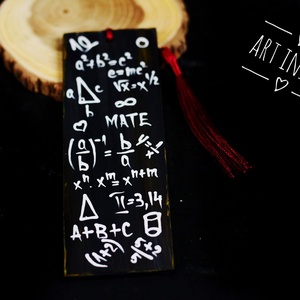 a²+b²=c²
e=mc²
a c √x=x^1/2
b ∞
MATE
(a/b)⁻¹=b/a
xⁿ·xᵐ=xⁿ⁺ᵐ
π=3,14
A+B+C
(1+2)
ART IN